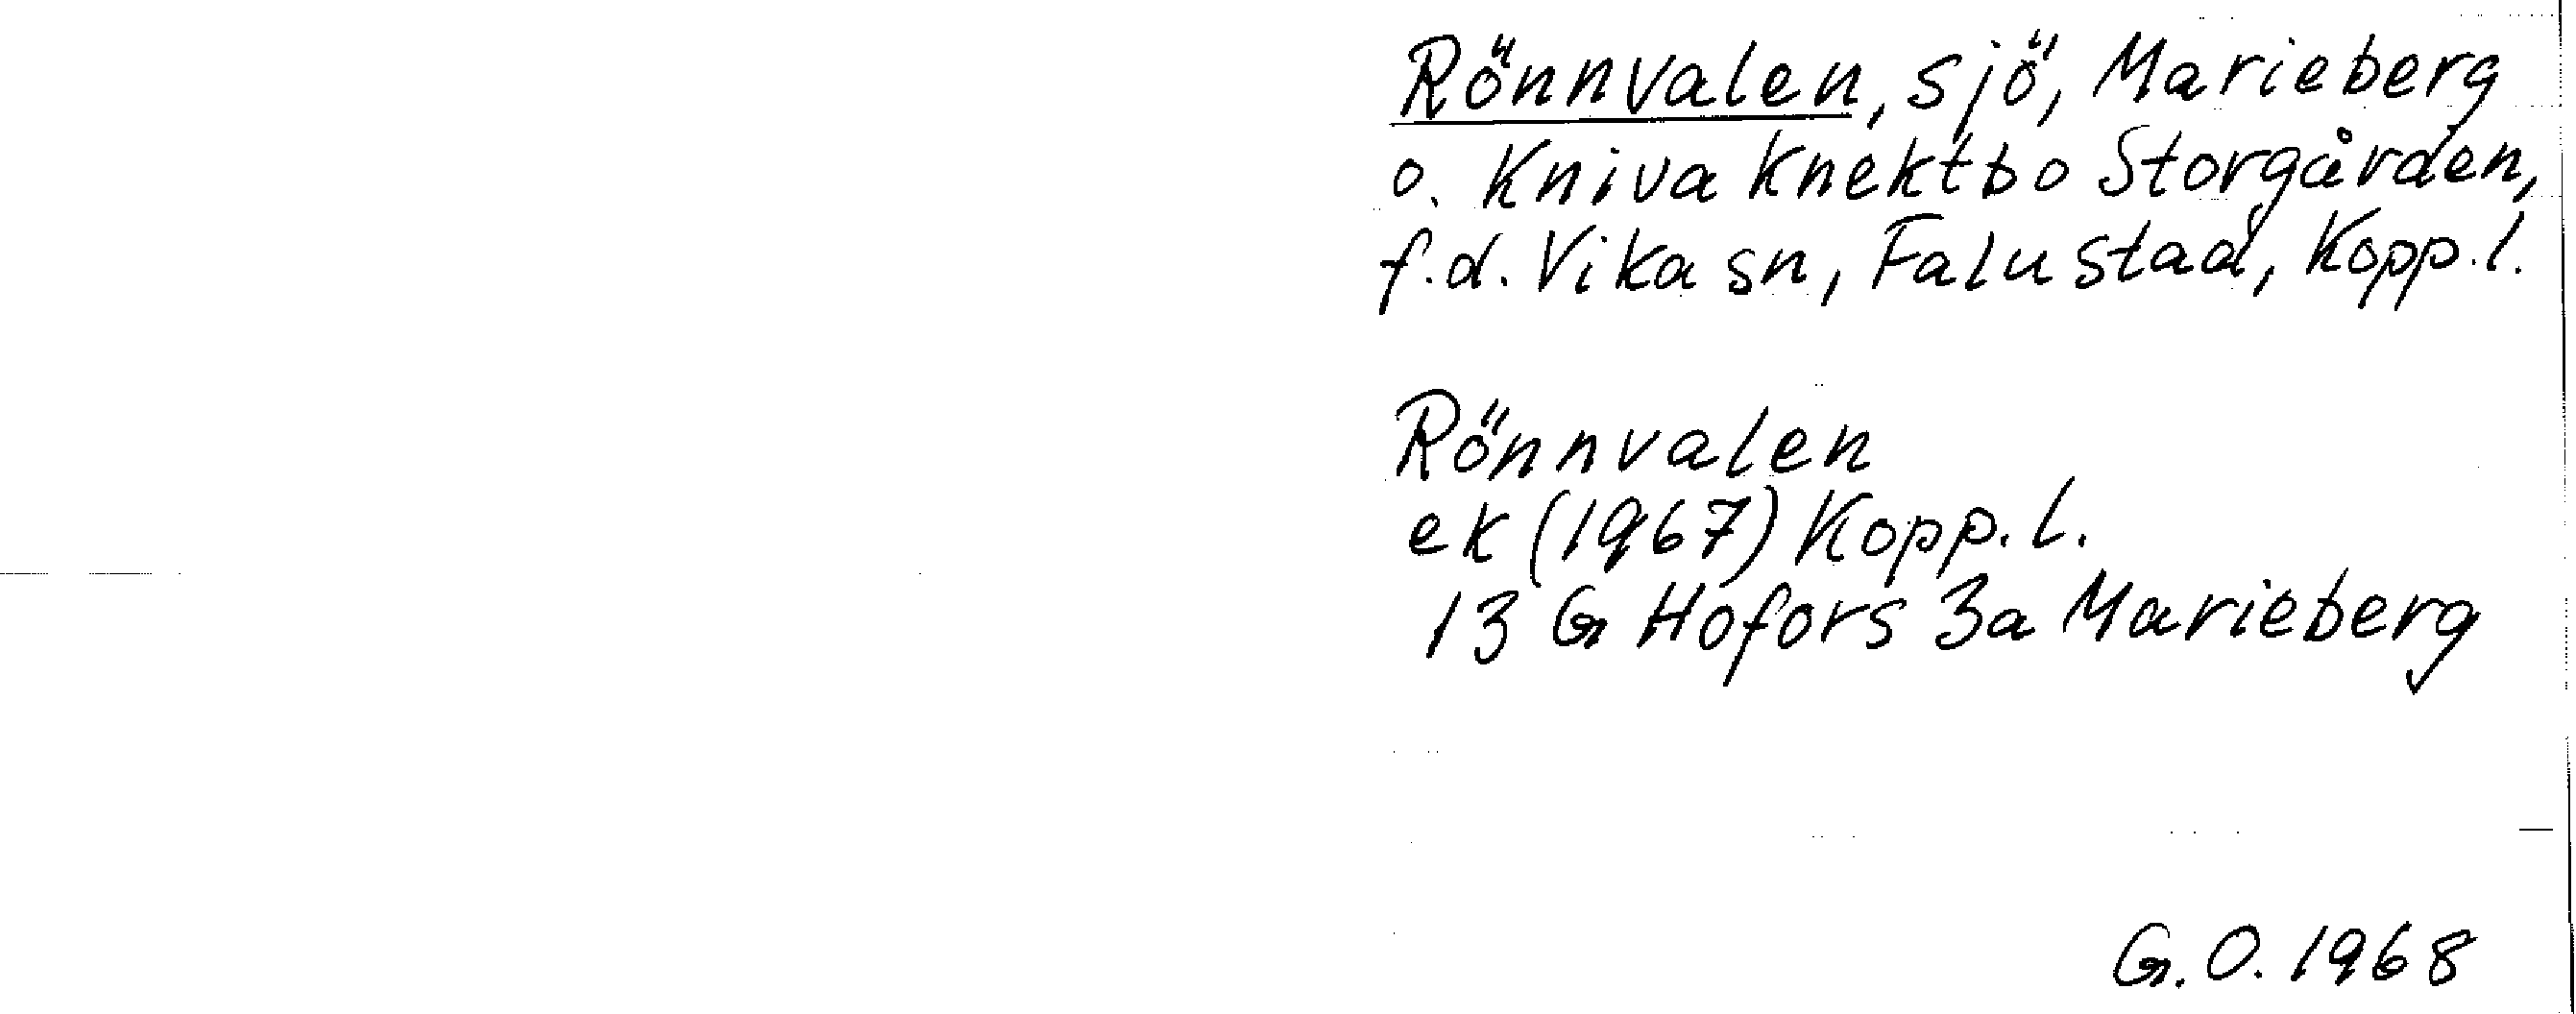 Rönnvalen, sjö, Marieberg
o. Kniva Knektbo Storgården,
f.d. Vika sn, Falu stad, Kopp.l.
Rönnvalen
ek (1967) Kopp. l.
13 G Hofors 3a Marieberg
G.O. 1968